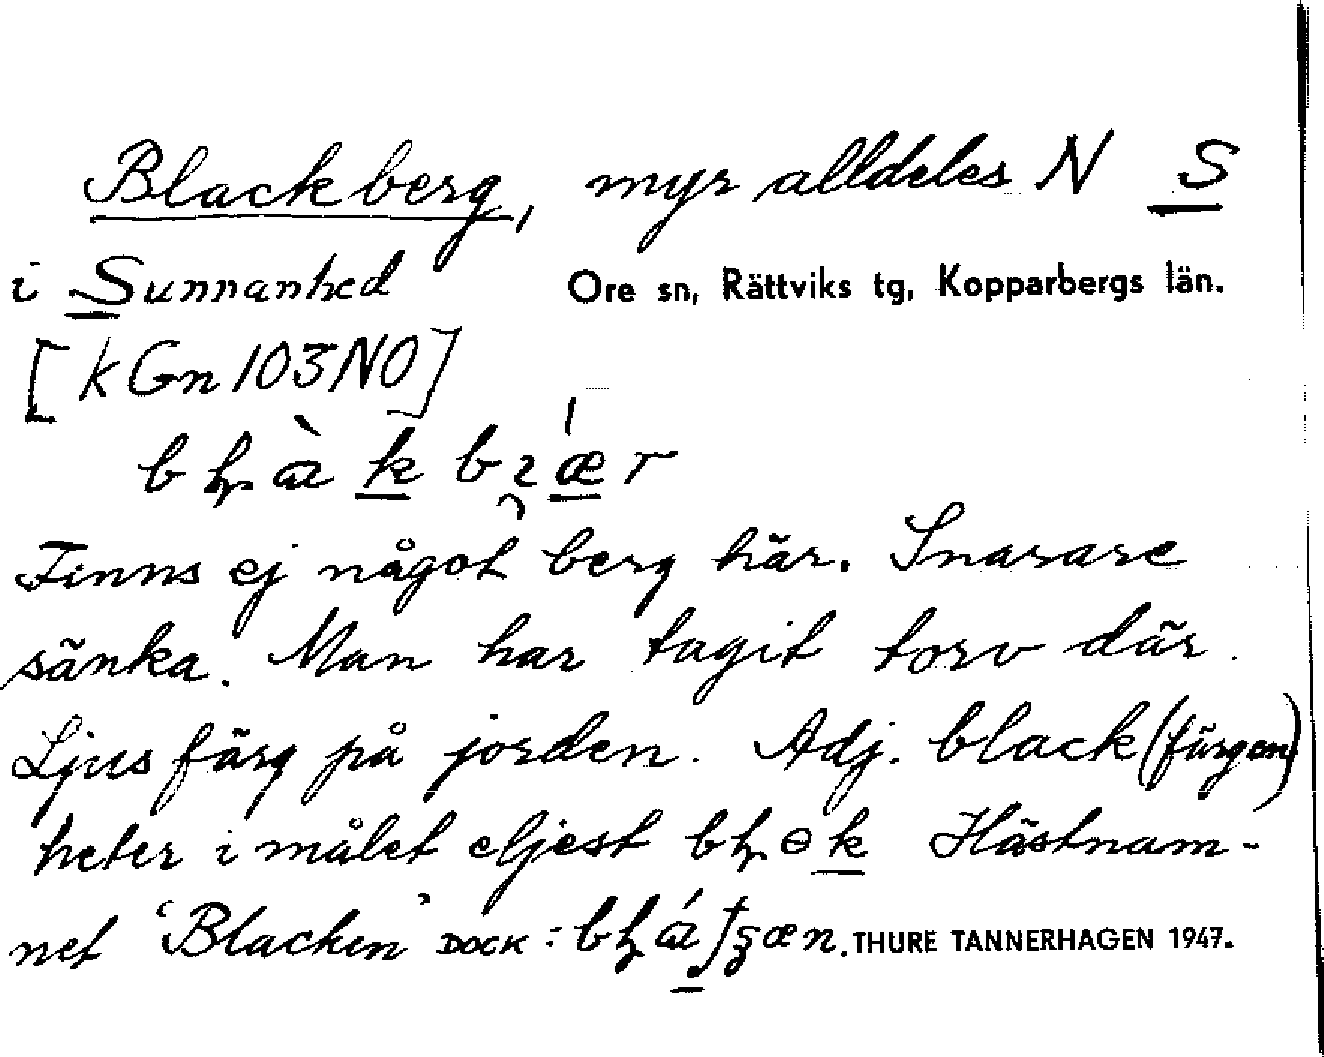 Blackberg, myr alldeles N S
i Sunnanhed Ore sn, Rättviks tg, Kopparbergs län.
[k Gn 103 NO]
Finns ej något berg här. Snarare
sänka. Man har tagit torv där.
Ljus färg på jorden. Adj. black (färgen)
heter i målet eljest Hästnam-
net 'Blacken' DOCK: THURE TANNERHAGEN 1947.